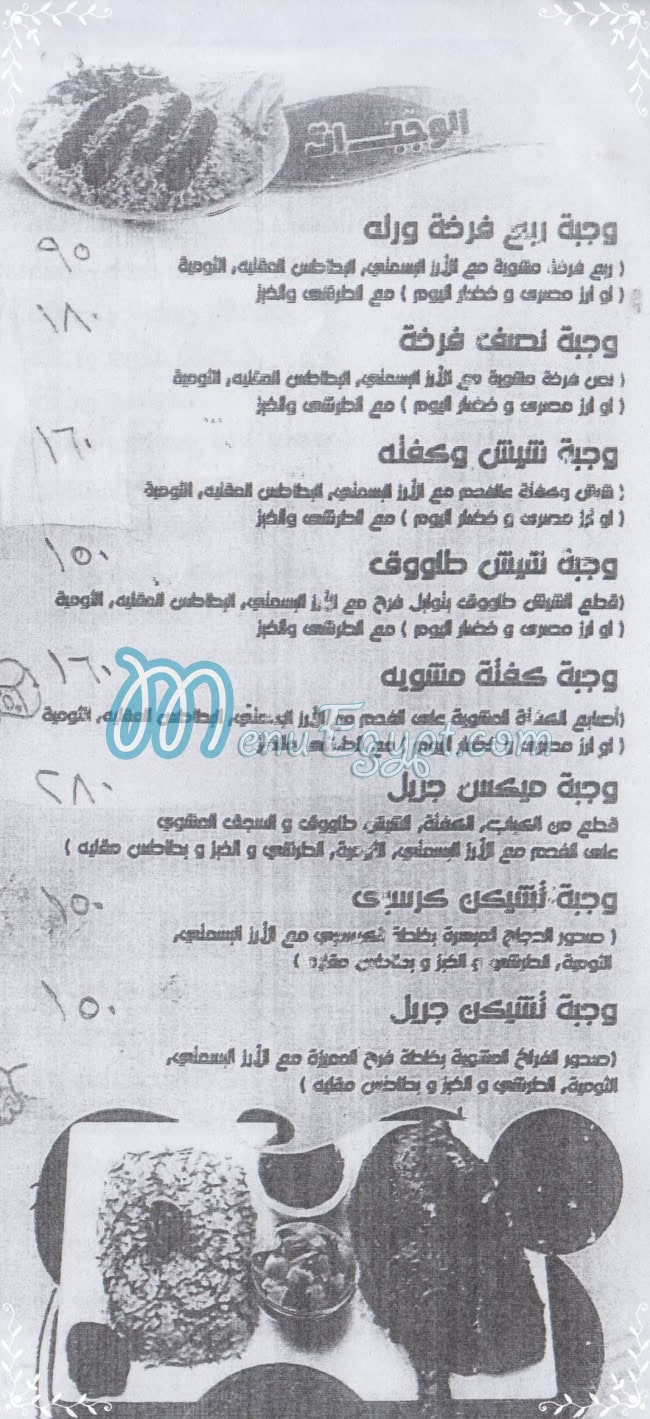 الوجبات
وجبة ربع فرخة ورك
٩٥
( ربع فرخة مشوية مع الأرز البسمتي, البطاطس المقليه, الثومية
( او ارز مصرى و خضار اليوم ) مع الطرشى والخبز
وجبة نصف فرخة
١٨٠
( نص فرخة مشوية مع الأرز البسمتي, البطاطس المقليه, الثومية
( او ارز مصرى و خضار اليوم ) مع الطرشى والخبز
وجبة شيش وكفته
١٦٠
( شيش وكفتة عالفحم مع الأرز البسمتي, البطاطس المقليه, الثومية
( او ارز مصرى و خضار اليوم ) مع الطرشى والخبز
وجبة شيش طاووق
١٥٠
(قطع الشيش طاووق بتوابل فرح مع الأرز البسمتي, البطاطس المقليه, الثومية
( او ارز مصرى و خضار اليوم ) مع الطرشى والخبز
وجبة كفتة مشويه
١٦٠
(أصابع الكفتة المشوية على الفحم مع الأرز البسمتي, البطاطس المقليه, الثومية
( او ارز مصرى و خضار اليوم ) مع الطرشى والخبز
MenuEgypt.com
وجبة ميكس جريل
٢٨٠
قطع من الكباب, الكفتة, الشيش طاووق و السجق المشوي
على الفحم مع الأرز البسمتي, الثومية, الطرشي و الخبز و بطاطس مقليه )
وجبة تشيكن كرسبى
١٥٠
( صدور الدجاج المبهرة بخلطة الكرسبي مع الأرز البسمتي,
الثومية, الطرشي و الخبز و بطاطس مقليه )
وجبة تشيكن جريل
١٥٠
(صدور الفراخ المشوية بخلطة فرح المميزة مع الأرز البسمتي,
الثومية, الطرشي و الخبز و بطاطس مقليه )